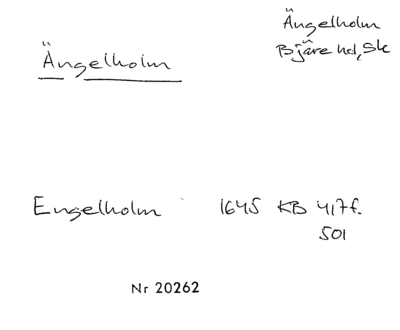 Ängelholm
Bjäre hd, Sk
Ängelholm
Engelholm 1645 KB 417f.
501
Nr 20262